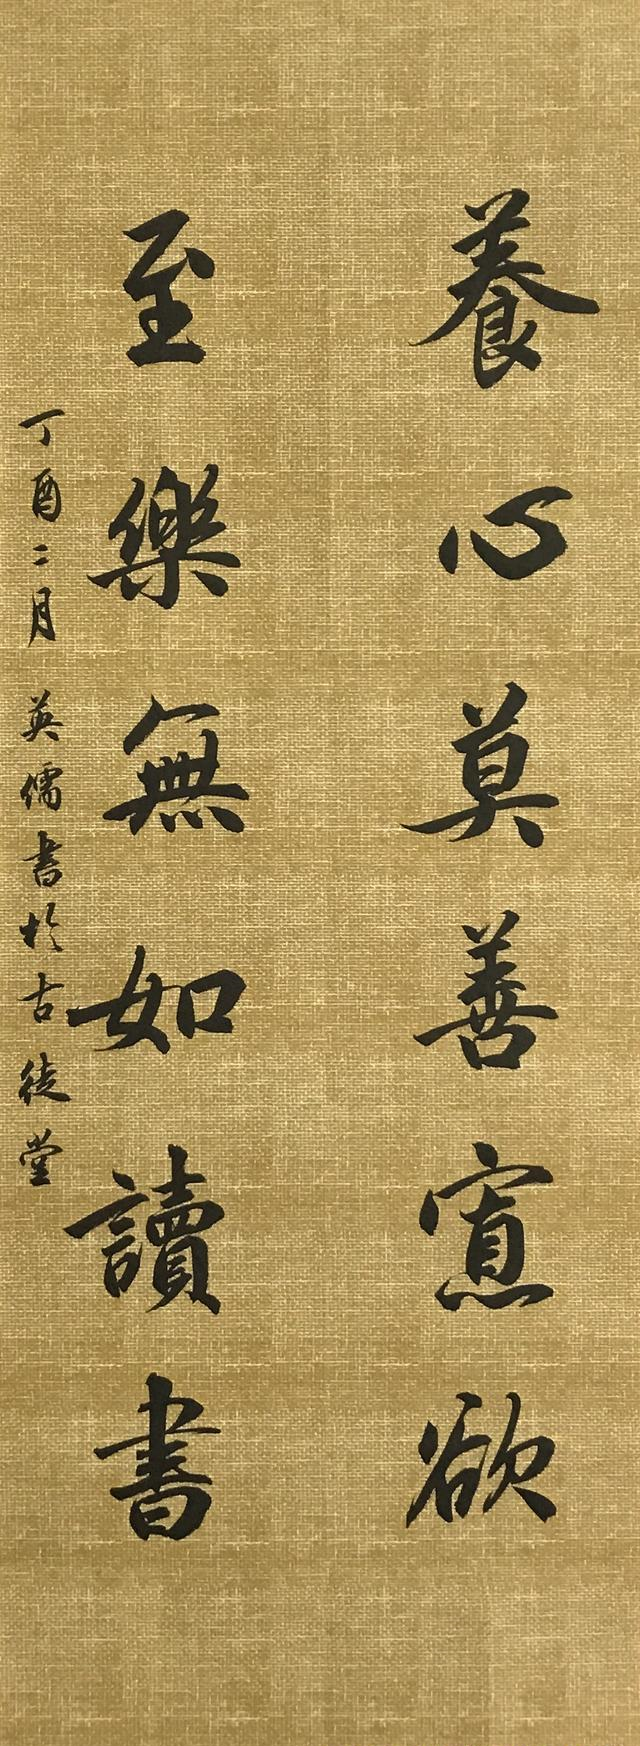 養心莫善寡欲
至樂無如讀書
丁酉二月 英儒書於古徒堂